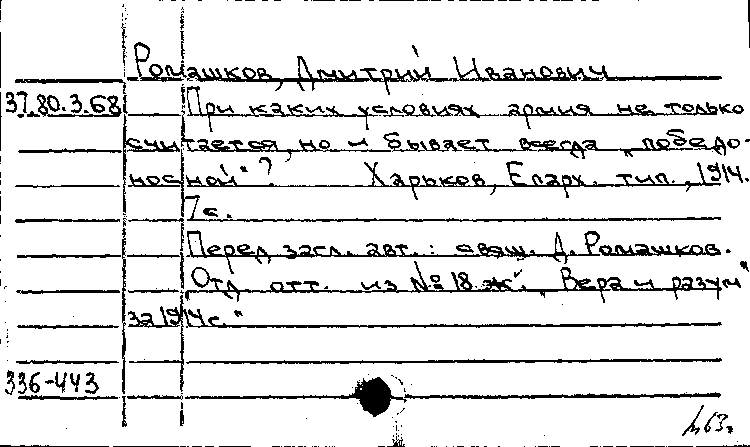 Ромашков, Дмитрий Иванович
37.80.3.68 При каких условиях армия не только
считается, но и бывает всегда „победо-
носной"? Харьков, Епарх. тип., 1914.
7 с.
Перед загл. авт.: свящ. Д. Ромашков.
„Отд. отт. из № 18 ж. „Вера и разум"
за 1914 г."
336-443